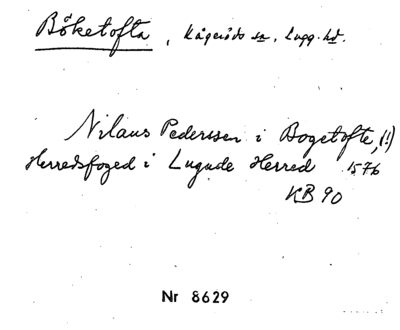 Böketofta, Kågeröds sn, Lugg. hd.
Nilaus Pederssen i Bogetofte, (!)
Herredsfoged i Lugude Herred 1576
KB 90
Nr 8629